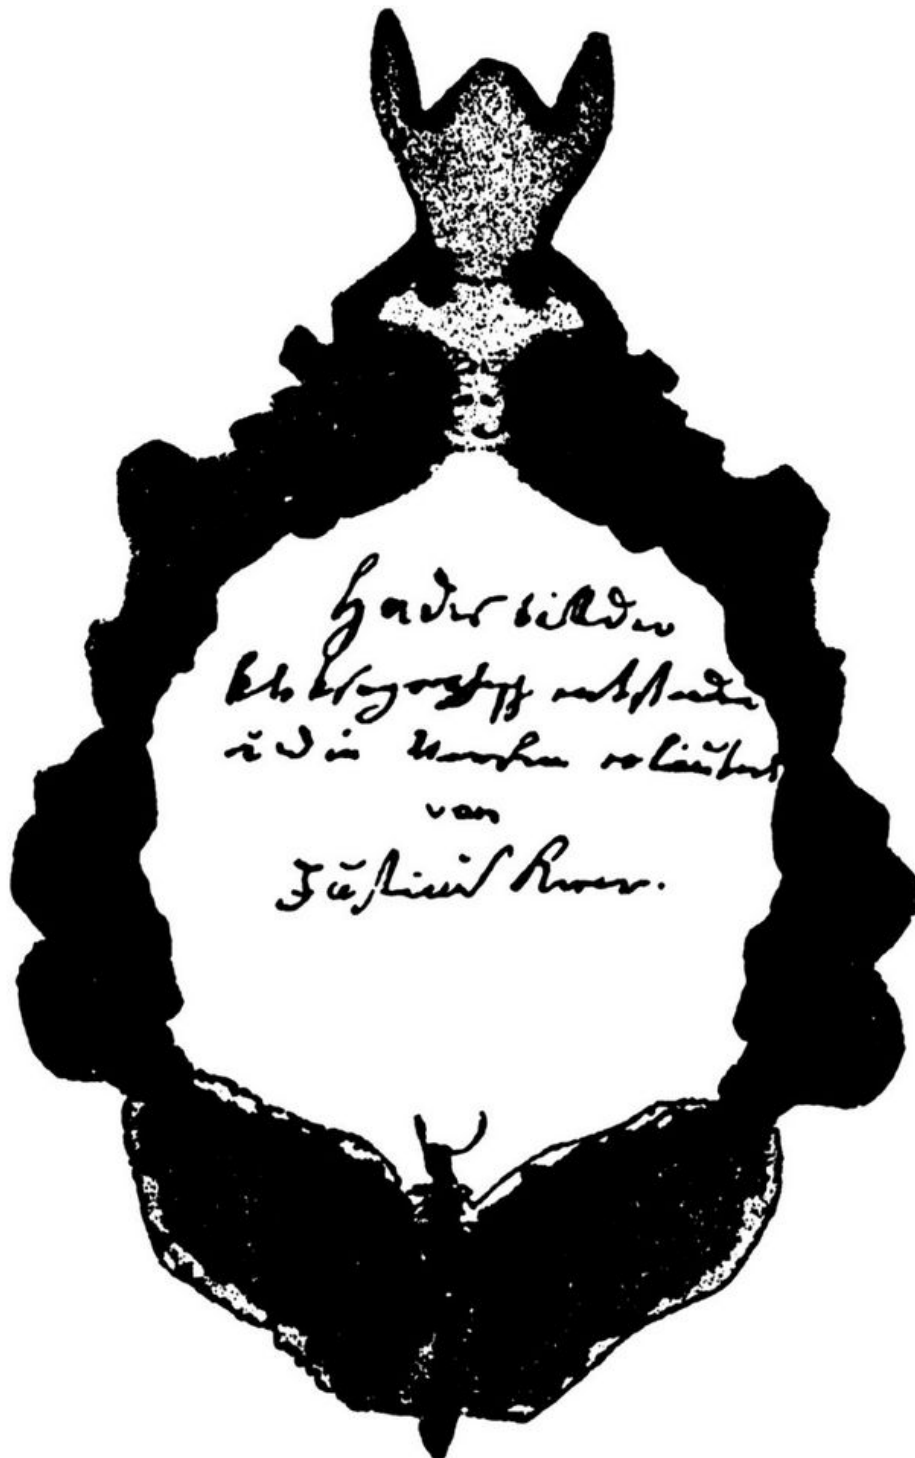 Hadesbilder
kleksographisch entstanden
u. d in Versen erläutert
von
Justinus Kerner.